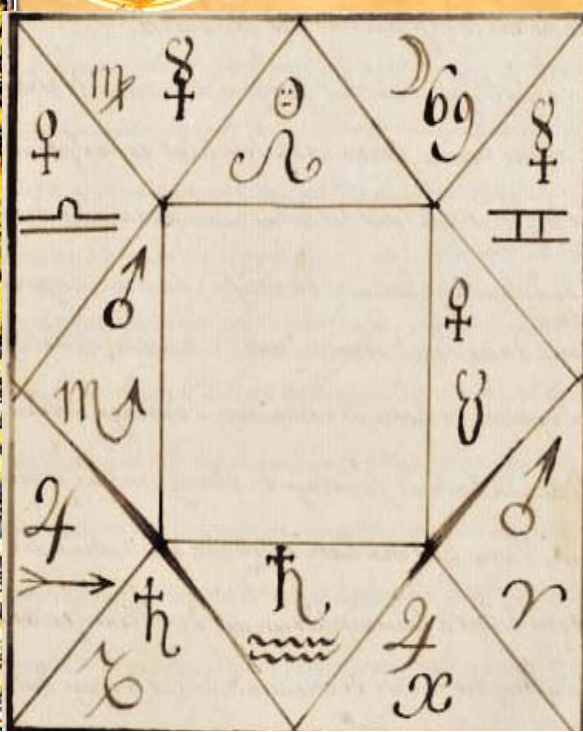 ♍ ☿
☉
♌
☽ ♋
♀
♎
☿
♊
♂
♏
♀
♉
♃
♐
♂
♈
♄
♑
♄
♒
♃
♓